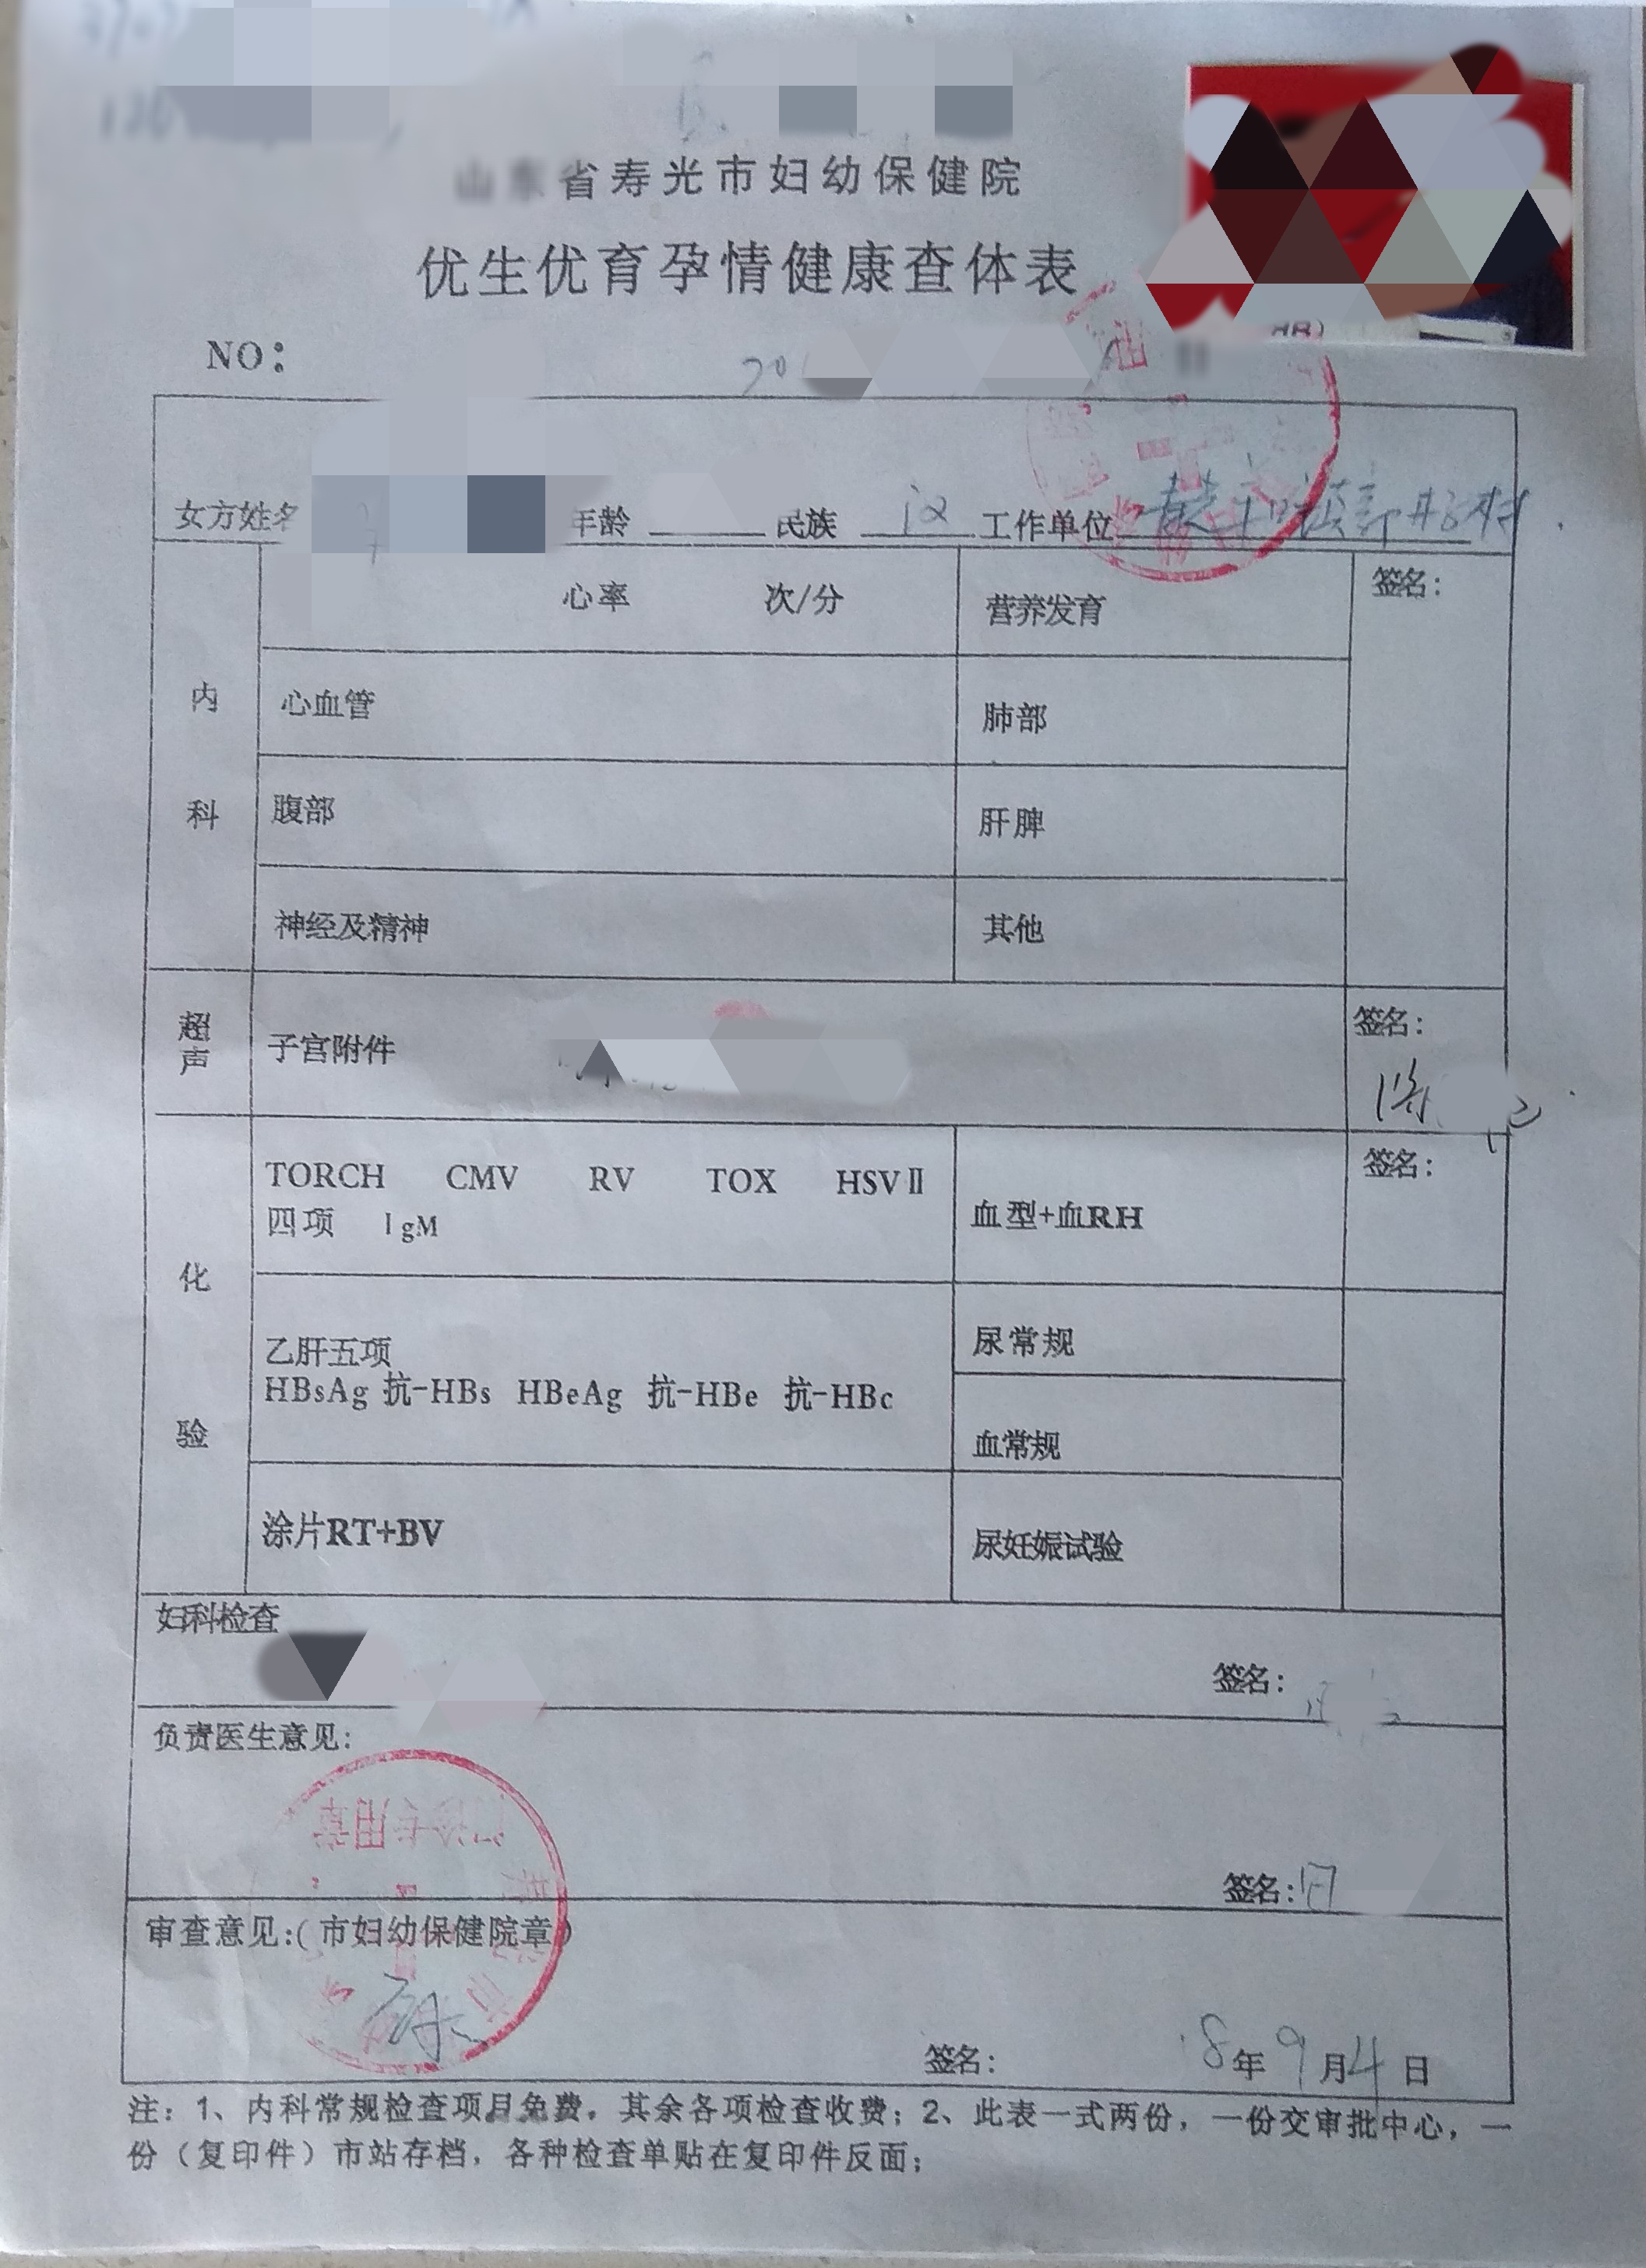 山东省寿光市妇幼保健院
优生优育孕情健康查体表
NO:
女方姓名 年龄 民族 汉 工作单位
内科
心率 次/分 营养发育 签名:
心血管 肺部
腹部 肝脾
神经及精神 其他
超声 子宫附件 签名:
化验
TORCH CMV RV TOX HSVⅡ
四项 IgM
血型+血RH
签名:
乙肝五项
HBsAg 抗-HBs HBeAg 抗-HBe 抗-HBc
尿常规
血常规
涂片RT+BV 尿妊娠试验
妇科检查
签名:
负责医生意见:
签名:
审查意见:(市妇幼保健院章)
签名: 8年9月4日
注: 1、内科常规检查项目免费, 其余各项检查收费; 2、此表一式两份, 一份交审批中心, 一
份(复印件)市站存档, 各种检查单贴在复印件反面;